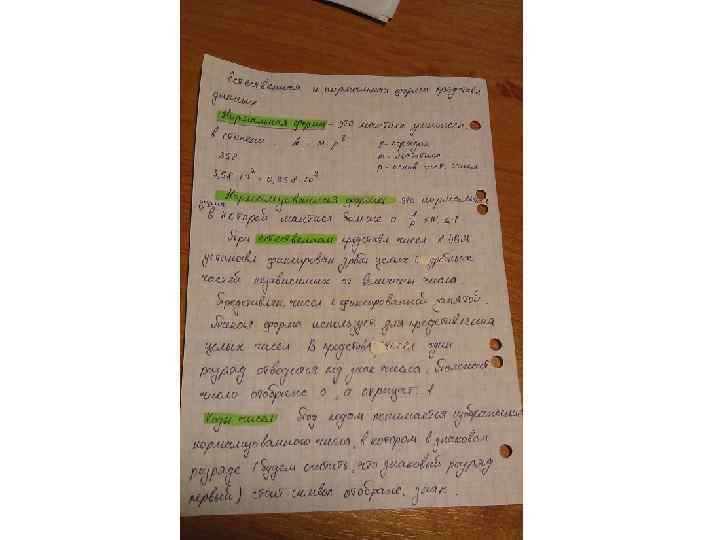 Естественная и нормальная форма представл
данных
Нормальная форма - это мантиса умножена
в степени . A = m p^q q - порядок
358 m - мантисса
3,58·10² = 0,358·10³ p - основ сист. числ
Нормализованная форма - это нормальная
в которой мантиса больше
При естественном представл чисел в ЭВМ
установл фиксирован длина целых и дробных
частей независимых от величины числа.
Представлен. чисел с фиксированной запятой.
Такая форма использует для представления
целых чисел В представл чисел один
розряд отводится под знак числа. Положит
число отображе 0, а отрицат. 1
Коды чисел Под кодом понимается изображение
нормализованного числа, в котором в знаковом
розряде (будем считать, что знаковый розряд
первый) стоит символ отображе. знак.